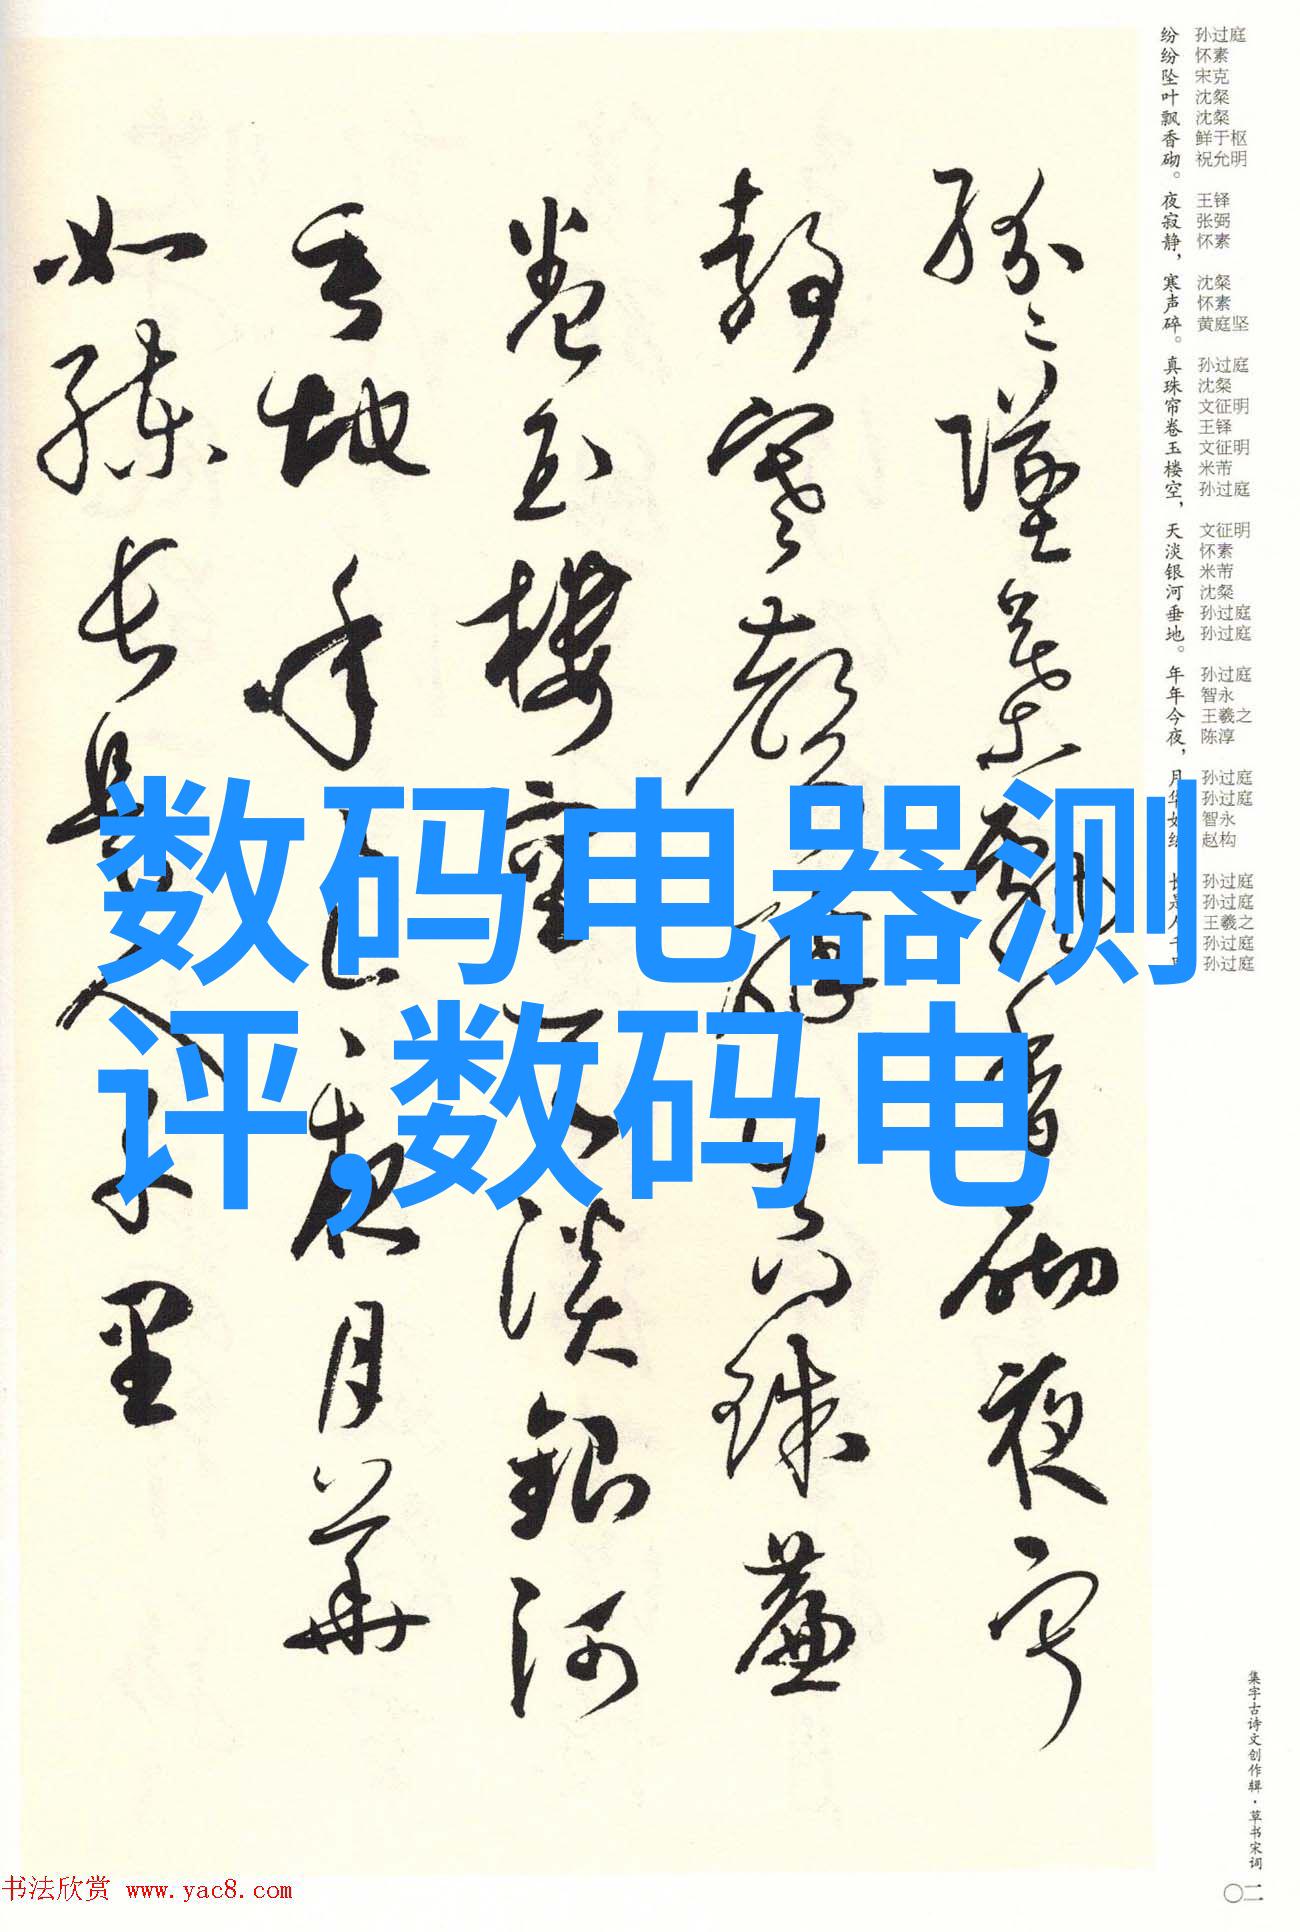 纷纷坠叶飘香砌。夜寂静，寒声碎。真珠帘卷玉楼空，天淡银河垂地。年年今夜，月华如练，长是人千里
孙过庭
怀素
宋克
沈粲
沈粲
鲜于枢
祝允明
王铎
张弼
怀素
沈粲
怀素
黄庭坚
孙过庭
沈粲
文征明
王铎
文征明
米芾
孙过庭
文征明
怀素
米芾
沈粲
孙过庭
孙过庭
孙过庭
智永
王羲之
陈淳
孙过庭
孙过庭
智永
赵构
孙过庭
孙过庭
王羲之
孙过庭
孙过庭
纷纷坠叶飘香砌夜寂
静寒声碎真珠帘
卷玉楼空天淡银河
垂地年年今夜月华
如练长是人千里
数码电器测
评,数码电
集字古诗文创作辑·草书宋词
〇二
书法欣赏 www.yac8.com